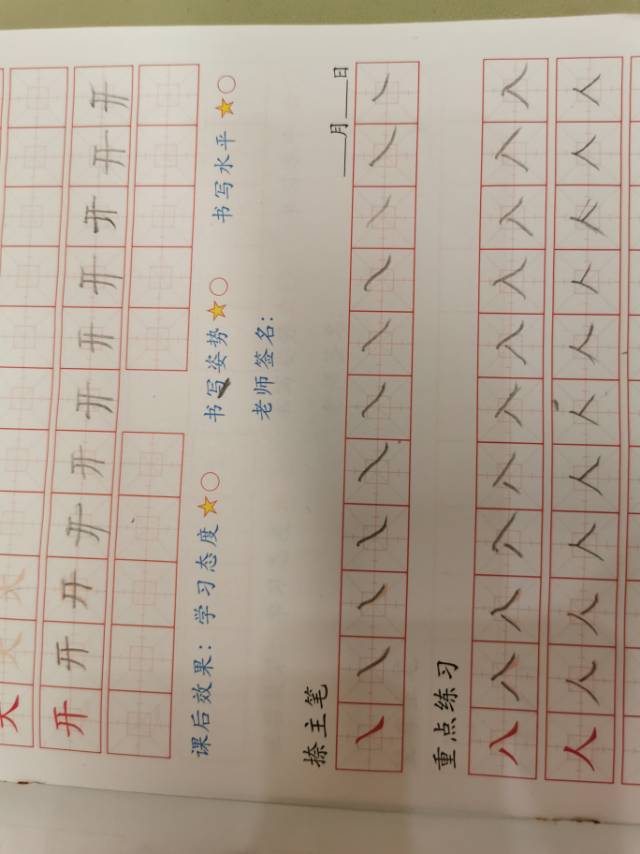 大 大 大
开 开 开 开 开 开 开 开 开 开 开
课后效果：学习态度★○ 书写姿势★○ 书写水平★○
老师签名：
捺主笔 ___月___日
㇏ ㇏ ㇏ ㇏ ㇏ ㇏ ㇏ ㇏ ㇏ ㇏ ㇏
重点练习
八 八 八 八 八 八 八 八 八 八 八
人 人 人 人 人 人 人 人 人 人 人